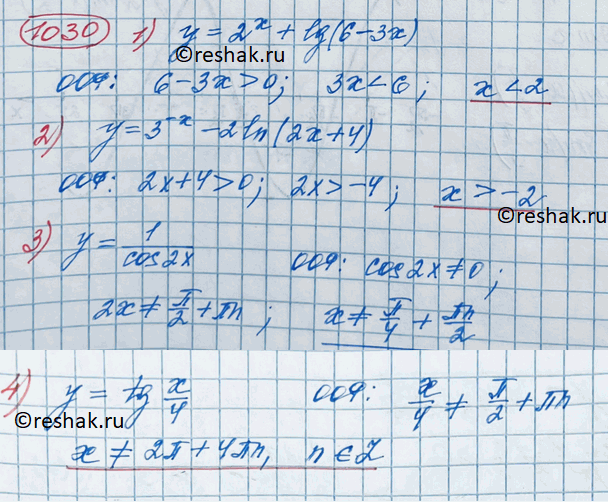 1030 1) y = 2^x + lg(6-3x)
©reshak.ru
ООФ: 6-3x>0; 3x<6; x<2
2) y = 3^-x - 2ln(2x+4)
ООФ: 2x+4>0; 2x>-4; x>-2
©reshak.ru
3) y = 1/cos2x ООФ: cos2x≠0;
2x ≠ π/2 + πn; x ≠ π/4 + πn/2
4) y = tg x/4 ООФ: x/4 ≠ π/2 + πn
©reshak.ru
x ≠ 2π + 4πn, n∈Z
©reshak.ru